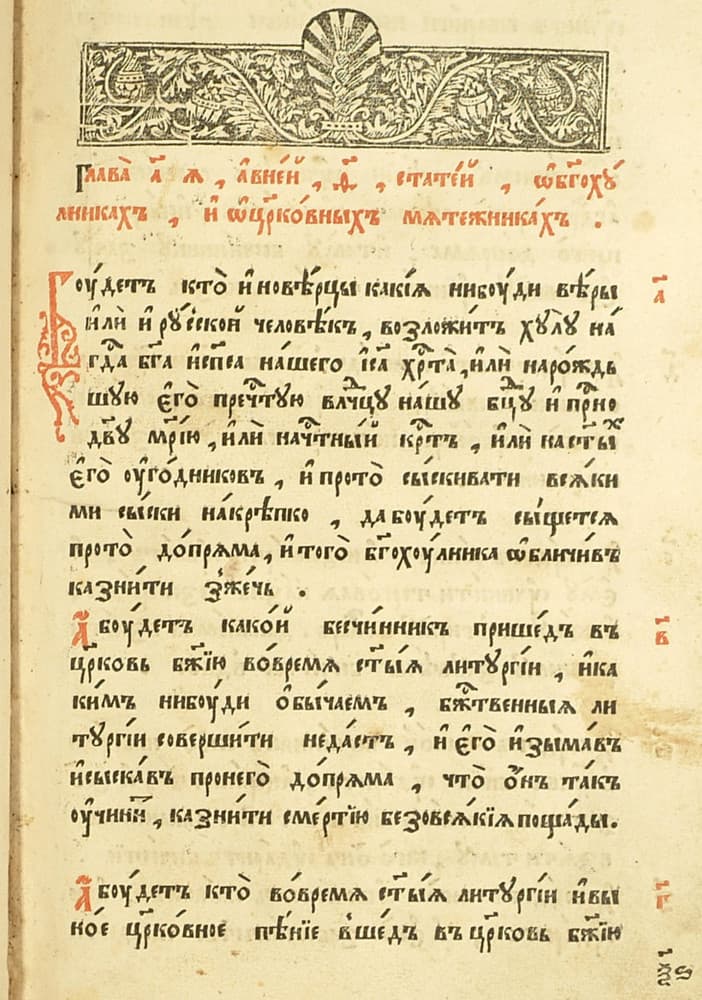 Глава̀ а҃ я, а҆вне́й, ѳ҃, стате́й, ѡ҆бг҃охꙋ́
лникахъ, и҆ ѡ҆цр҃ко́вныхъ мѧте́жникахъ.
Боу́детъ кто̀ и҆новѣ́рцы какі́ѧ нибоуди вѣ́ры
и҆лѝ и҆ рꙋ́сской человѣ́къ, возложи́тъ хꙋлꙋ̀ на́
гдⷭ҇а бг҃а и҆сп҃са на́шего і҆с҃а хрⷭ҇та̀, и҆лѝ наро́ждь
шꙋю є҆го̀ пречⷭ҇тꙋю влⷣчцꙋ на́шꙋ бцⷣꙋ и҆ прⷭ҇но
дв҃ꙋ мр҃і́ю, и҆лѝ начⷭ҇тны́й крⷭ҇тъ, и҆лѝ наст҃ы́хъ
є҆го̀ оу҆го́дниковъ, и҆ прото̀ сы́скивати всѧ́ки
ми сы́ски на́крѣпко, да боу́детъ сы́щетсѧ
прото̀ до́прѧма, и҆того̀ бг҃охоу́лника ѡ҆бличи́въ
казни́ти зже́чь.
А҆ боу́детъ како́й бесчи́нникъ прише́дъ въ
цр҃ковь бж҃їю во́времѧ ст҃ы́ѧ литꙋргі́и, и҆ка
ки́мъ нибоу́ди о҆бы́чаемъ, бжⷭ҇твенныѧ ли
тꙋргі́и соверши́ти неда́стъ, и҆ є҆го̀ и҆зыма́въ
и҆сыска́въ пронего̀ до́прѧма, что̀ о҆́нъ та́къ
оу҆чини́тъ, казни́ти сме́ртїю безовсѧ́кїѧ поща́ды.
А҆ боу́детъ кто̀ во́времѧ ст҃ы́ѧ литꙋргі́и и҆вы
но́е цр҃ко́вное пѣ́нїе вше́дъ въ цр҃ковь бж҃їю
а҃
в҃
г҃